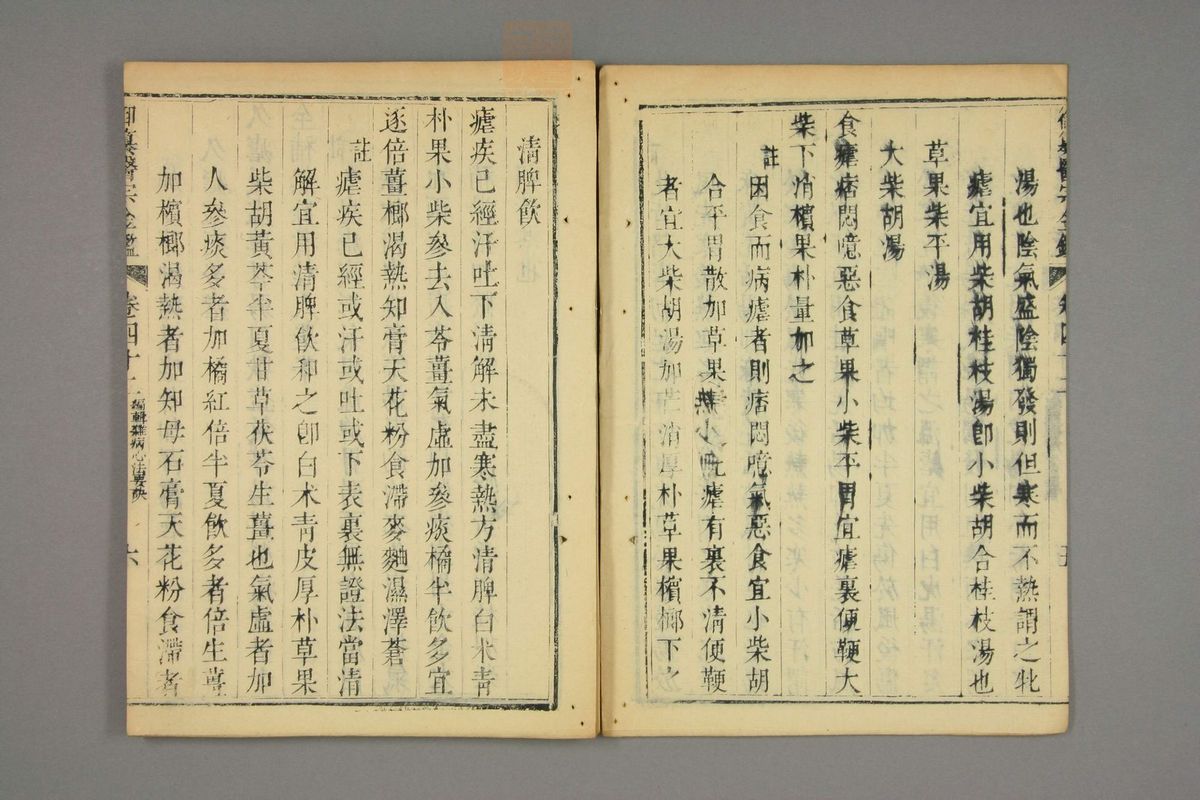 湯也陰氣盛陰獨發則但寒而不熱謂之牝
瘧宜用柴胡桂枝湯卽小柴胡合桂枝湯也
草果柴平湯
大柴胡湯
食瘧痞悶噫惡食草果小柴平胃宜瘧裏便鞕大
柴下消檳果朴量加之
註
因食而病瘧者則痞悶噫氣惡食宜小柴胡
合平胃散加草果 瘧有裏不清便鞕
者宜大柴胡湯加芒消厚朴草果檳榔下之
五
清脾飲
瘧疾已經汗吐下清解未盡寒熱方清脾白朮青
朴果小柴參去入苓薑氣虛加參痰橘半飲多宜
逐倍薑榔渴熱知膏天花粉食滯麥麯濕澤蒼
註
瘧疾已經或汗或吐或下表裏無證法當清
解宜用清脾飲和之卽白朮青皮厚朴草果
柴胡黃芩半夏甘草茯苓生薑也氣虛者加
人參痰多者加橘紅倍半夏飲多者倍生薑
加檳榔渴熱者加知母石膏天花粉食滯者
御纂醫宗金鑑
卷四十
編輯雜病心法要訣
六